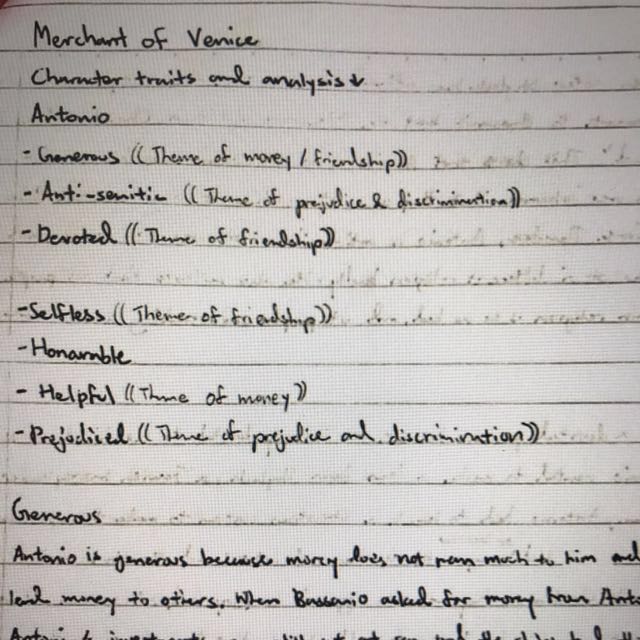 Merchant of Venice
Character traits and analysis ↓
Antonio
- Generous ((Theme of money / friendship))
- Anti-semitic ((Theme of prejudice & discrimination))
- Devoted ((Theme of friendship))
- Selfless ((Theme of friendship))
- Honarable
- Helpful ((Thme of money))
- Prejudised ((Theme of prejudice and discrimination))
Generous
Antonio is generous because money does not mean much to him and
lend money to others. When Bassanio asked for money from Anto
Antonio